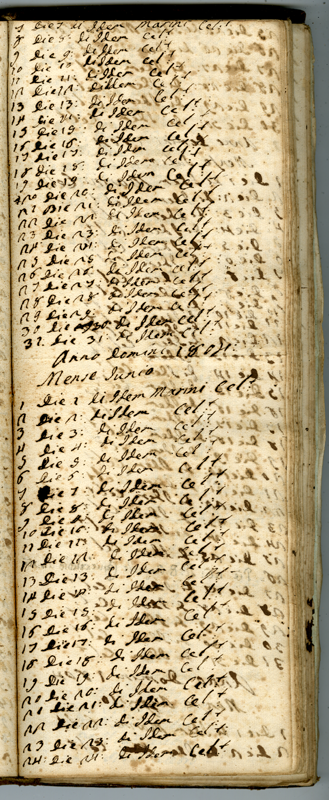 7 die 7 di Idem Marini Celt
8 die 8: di Idem Celt
9 die 9: di Idem Celt
10 die 10: di Idem Celt
11 die 11: di Idem Celt
12 die 12: di Idem Celt
13 die 13: di Idem Celt
14 die 14: di Idem Celt
15 die 15: di Idem Celt
16 die 16: di Idem Celt
17 die 17: di Idem Celt
18 die 18: di Idem Celt
19 die 19: di Idem Celt
20 die 20: di Idem Celt
21 Die 21: di Idem Celt
22 die 22: di Idem Celt
23 die 23: di Idem Celt
24 die 24: di Idem Celt
25 die 25 di Idem Celt
26 die 26: di Idem Celt
27 die 27: di Idem Celt
28 die 28 di Idem Celt
29 die 29: di Idem Celt
30 die 30 di Idem Celt
31 die 31: di Idem Celt
Anno domini 1801
Mense Junio
1 die 1 di Idem Marini Celt
2 die 2: di Idem Celt
3 die 3: di Idem Celt
4 die 4: di Idem Celt
5 die 5: di Idem Celt
6 die 6: di Idem Celt
7 die 7: di Idem Celt
8 die 8: di Idem Celt
9 die 9: di Idem Celt
10 die 10: di Idem Celt
11 die 11 di Idem Celt
12 die 12: di Idem Celt
13 die 13 di Idem Celt
14 die 14: di Idem Celt
15 die 15: di Idem Celt
16 die 16: di Idem Celt
17 die 17: di Idem Celt
18 die 18: di Idem Celt
19 die 19: di Idem Celt
20 die 20: di Idem Celt
21 die 21: di Idem Celt
22 die 22: di Idem Celt
23 die 23: di Idem Celt
24: die 24: di Idem Celt